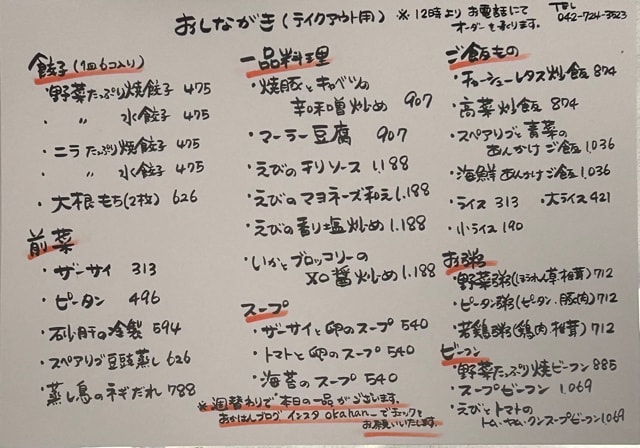 おしながき(テイクアウト用) ※12時よりお電話にて
オーダーを承ります。
TEL
042-724-3523
餃子(1皿6コ入り)
・野菜たっぷり焼餃子 475
・ 〃 水餃子 475
・ニラたっぷり焼餃子 475
・ 〃 水餃子 475
・大根もち(2枚) 626
前菜
・ザーサイ 313
・ピータン 496
・砂肝の冷製 594
・スペアリブ豆豉蒸し 626
・蒸し鳥のネギだれ 788
一品料理
・焼豚とキャベツの
辛味噌炒め 907
・マーラー豆腐 907
・えびのチリソース 1.188
・えびのマヨネーズ和え 1.188
・えびの香り塩炒め 1.188
・いかとブロッコリーの
XO醤炒め 1.188
スープ
・ザーサイと卵のスープ 540
・トマトと卵のスープ 540
・海苔のスープ 540
※週替わりで本日の一品がございます。
おかはんブログ インスタ okahan_でチェックを
お願いいたします。
ご飯もの
・チャーシューレタス炒飯 874
・高菜炒飯 874
・スペアリブと青菜の
あんかけご飯 1.036
・海鮮あんかけご飯 1.036
・ライス 313 ・大ライス 421
・小ライス 190
お粥
・野菜粥(ほうれん草椎茸) 712
・ピータン粥(ピータン.豚肉) 712
・若鶏粥(鶏肉.椎茸) 712
ビーフン
・野菜たっぷり焼ビーフン 885
・スープビーフン 1.069
・えびとトマトの
トム・ヤム・クンスープビーフン 1.069